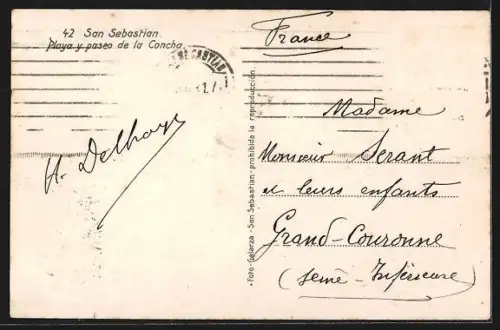 42 San Sebastian
Playa y paseo de la Concha
France
Madame
Monsieur Serant
et leurs enfants
Grand-Couronne
(Seine-Inférieure)
H. Delhaye
- Foto-Galarza - San Sebastian - prohibida la reproducción.